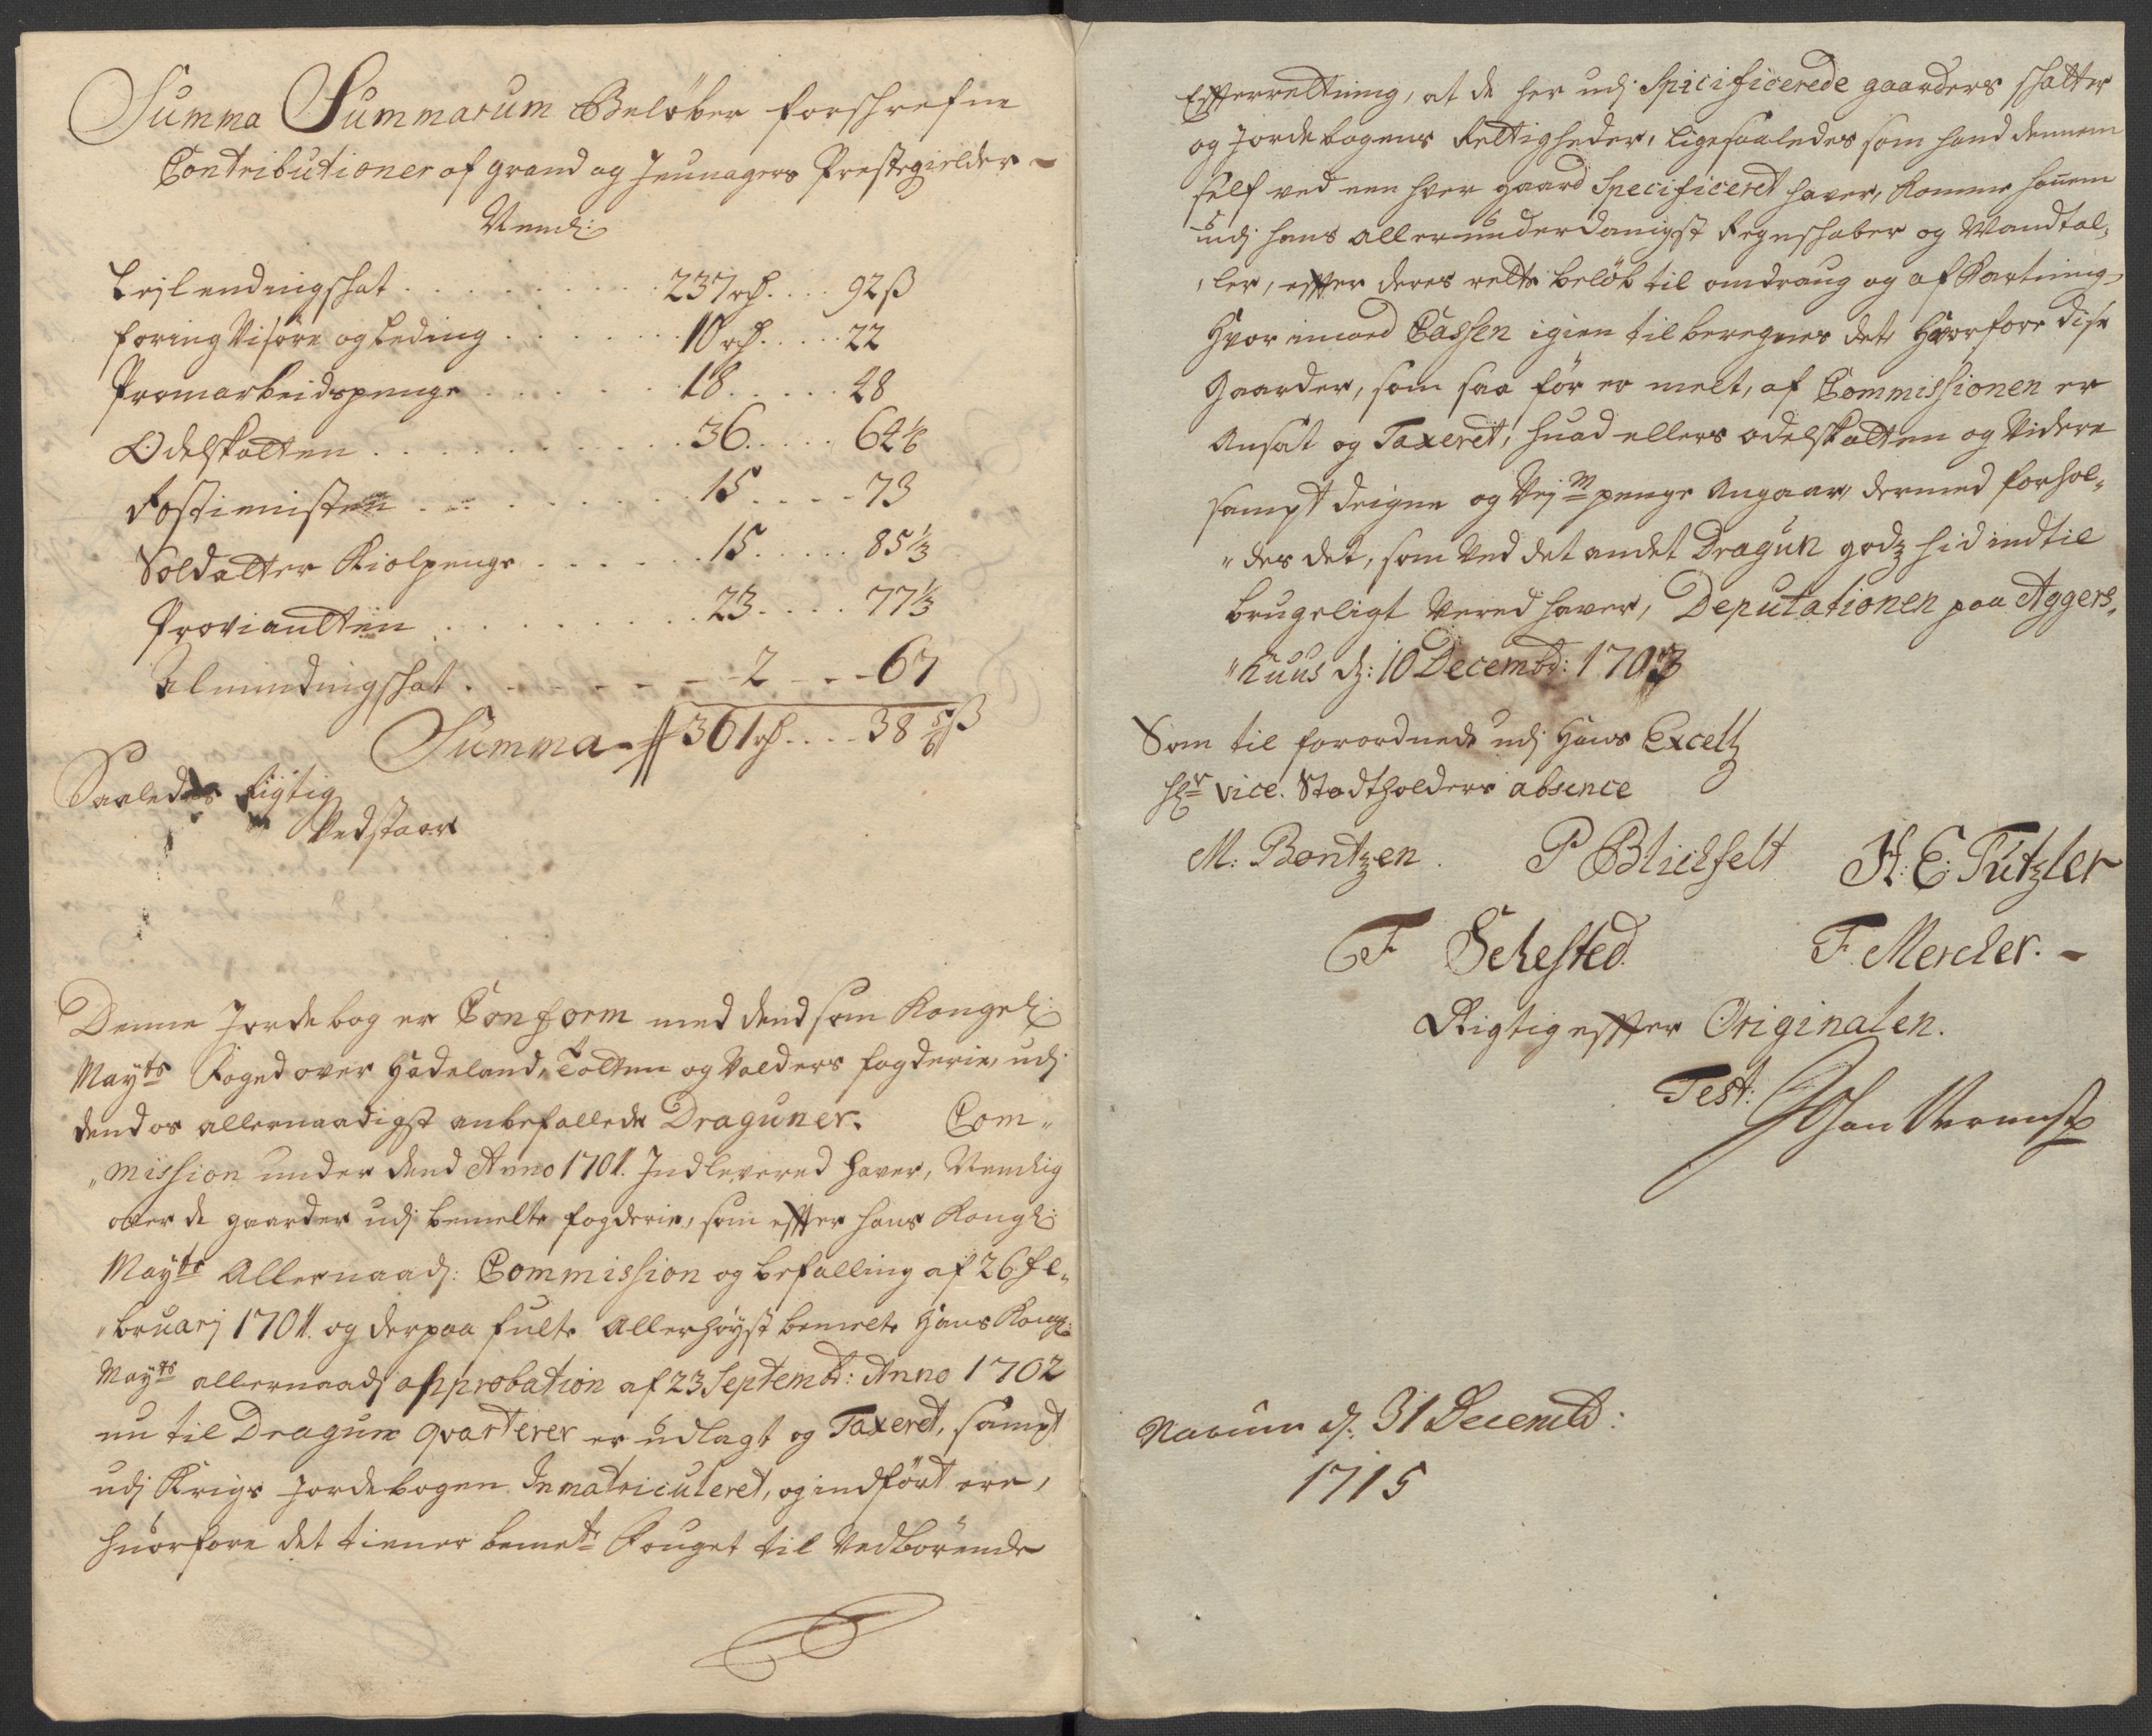 Summa Summarum Beløber forschrefne
Contributioner af grand og Jeunagers Præstegielder -
Nemlig
Lejlendingschat . . . 237 rd . . . 92 ß
foring Visøre og Leding . . . 10 rd . . . 22
Promarbeidspenge . . . 18 . . . 48
Odelskatten . . . 36 . . . 64 1/6
Rostienisten . . . 15 . . . 73
Soldatter Kiolpenge . . . 15 . . . 85 1/3
Proviantten . . . 23 . . . 77 1/3
Almindingschat . . . 2 . . . 67
Summa 361 rd . . . 38 5/6 ß
Saaledes Rigtig
Vedstaar
Denne Jordebog er Conform med dend som Kongel:
Mayts Foged over Hadeland, Totten og Valders fogderie, udj
dend os allernaadigst anbefallede Draguner. Com„
„mission under dend Anno 1701. Indlevered haver, Nemlig
over de gaarder udj bemelte fogderie, som effter hans Kongl:
Mayts Allernaad: Commission og befalling af 26 fe„
„bruarj 1701. og derpaa fulte Allerhøyst bemelte Hans Kongl:
Mayts allernaad approbation af 23 Septembr: Anno 1702
nu til Dragun qvarterer er udlagt og Taxeret, sampt
udj Krigs Jordebogen Inmatriculeret, og indført ere,
huorfore det tiener bemelte Fouget til Vedbørende
Effterrettning, at de her udj Spicificerede gaarders schatter
og Jordebogens Rettigheder, ligesaaledes som hand dennem
self ved een hver gaard Specificeret haver, komme hannem
udj hans allerunderdanigst Regnschaber og Mandtal„
„ler, effter deres rette beløb til omdrang og afkortning,
Hvor imod Cassen igien tilberegnes det Hvorfore disse
Gaarder, som saa før er melt, af Commissionen er
Ansat og Taxeret, huad ellers odelskatten og Videre
sampt deigne og penge Angaar, dermed forhol„
„des det, som Ved det andet Dragun godz hid indtil
brugeligt Vered haver, Deputationen paa Aggers„
„huus d: 10 Decembr: 1703
Som til forordnede udj Hans Excell
Hr vice. Stadtholders absence
M: Bentzen. P Blichfelt H: E: Tützler
F Sehested. F. Mercker. -
Rigtig effter Originalen.
Test:
d. 31 Decembr:
1715